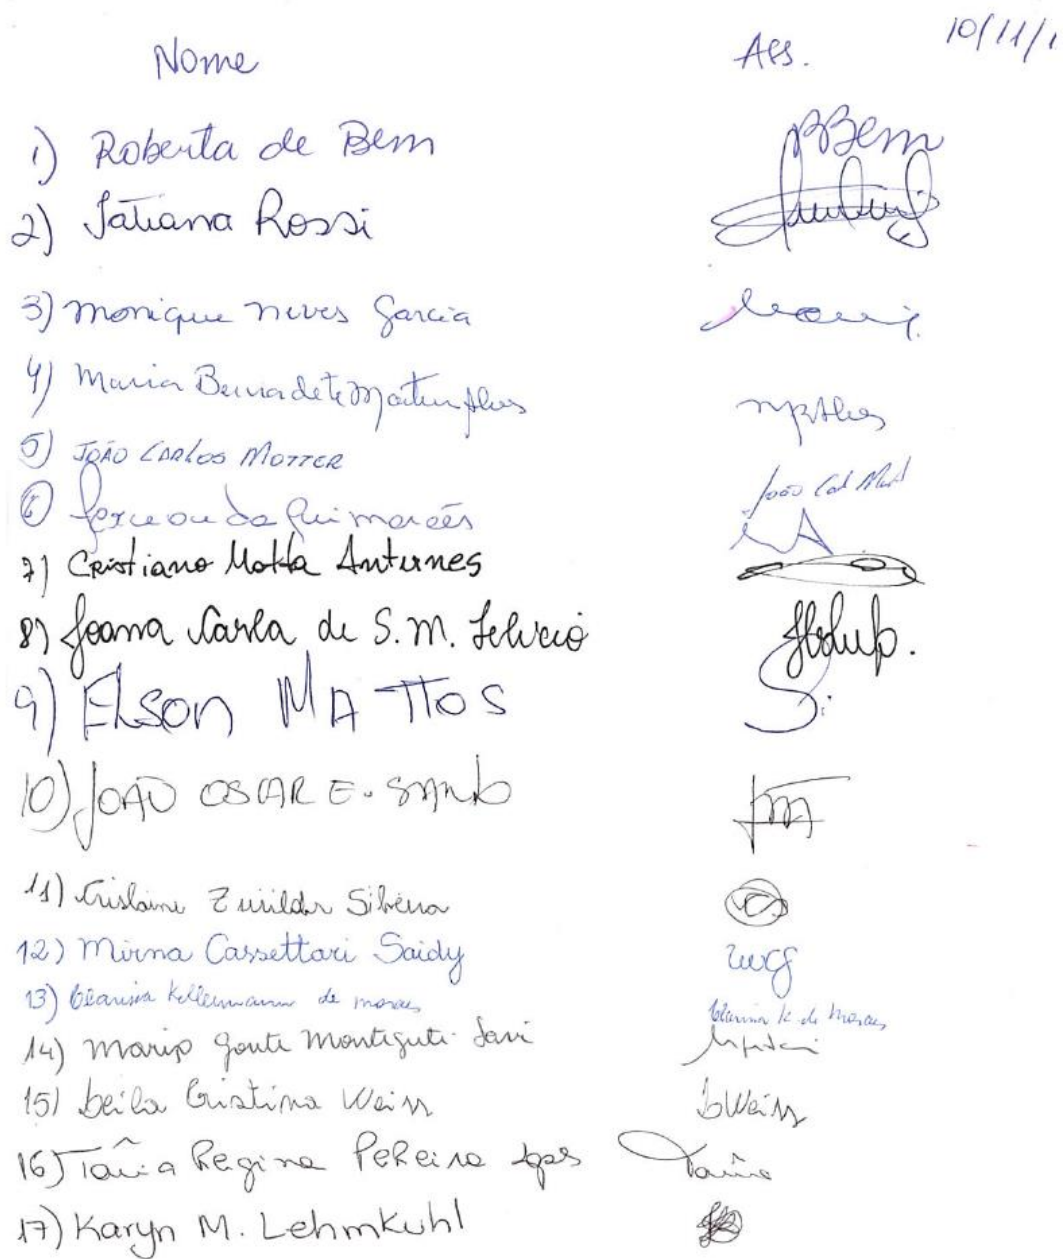 10/11/1
Nome Ass.
1) Roberta de Bem RBem
2) Tatiana Rossi
3) Monique Neves Garcia
4) Maria Bernadete Martins Alves MBAlves
5) JOÃO CARLOS MOTTER João Carl Mott
6 da Guimarães
7) Cristiano Motta Antunes
8) Joana Carla de S. M. Felicio
9) Elson MATTOS
10) JOÃO OSCAR E.
11) Crislaine Silveira
12) Mirna Cassettari Saidy
13) Clarissa Kellermann de Moraes Clarissa K. de Moraes
14) Maria Montiguti Savi
15) Leila Cristina Weiss LWeiss
16) Tânia Regina Pereira Tânia
17) Karyn M. Lehmkuhl